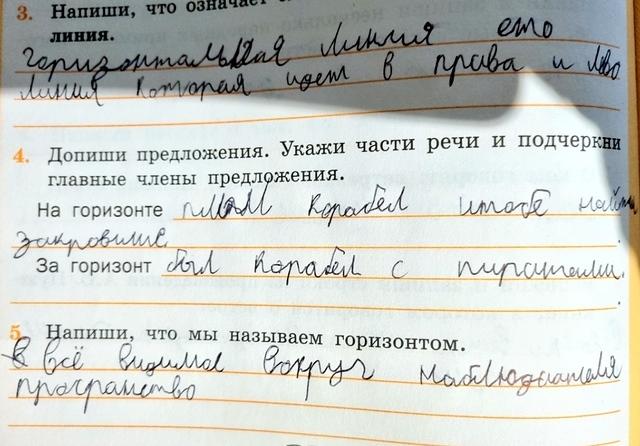 3. Напиши, что означает
линия.
горизонтальная линия ето
линия которая идет в права и лево
4. Допиши предложения. Укажи части речи и подчеркни
главные члены предложения.
На горизонте плыл корабел штобе найти
закровише.
За горизонт был корабел с пиратами.
5. Напиши, что мы называем горизонтом.
всё видимое вокруг наблюдателя
прочранство